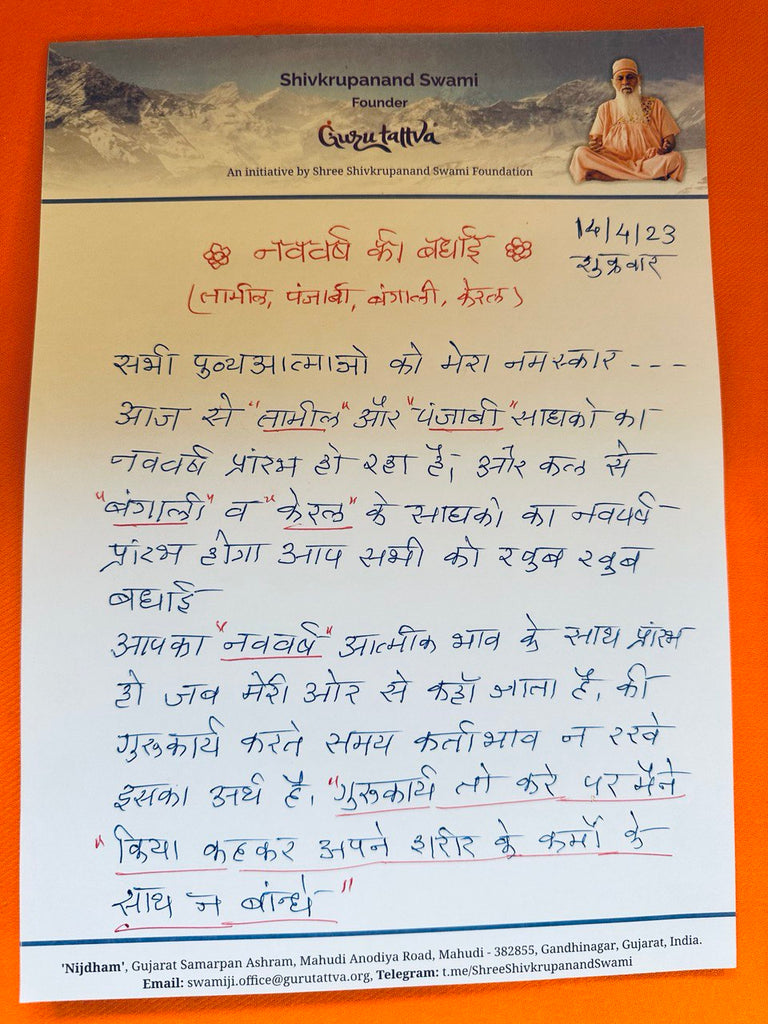 Shivkrupanand Swami
Founder
Gurutattva
An initiative by Shree Shivkrupanand Swami Foundation
14/4/23
शुक्रवार
नववर्ष की बधाई
(तामील, पंजाबी, बंगाली, केरल)
सभी पुण्यआत्माओ को मेरा नमस्कार - - -
आज से "तामील" और "पंजाबी" साधको का
नववर्ष प्रांरभ हो रहा है, और कल से
"बंगाली" व "केरल" के साधको का नववर्ष
प्रांरभ होगा आप सभी को खुब खुब
बधाई
आपका "नववर्ष" आत्मीक भाव के साथ प्रांरभ
हो जब मेरी ओर से कहाँ जाता है, की
गुरुकार्य करते समय कर्ताभाव न रखे
इसका अर्थ है, "गुरुकार्य तो करे पर मैने
"किया कहकर अपने शरीर के कर्मो के
साथ न बांन्धे"
'Nijdham', Gujarat Samarpan Ashram, Mahudi Anodiya Road, Mahudi - 382855, Gandhinagar, Gujarat, India.
Email: swamiji.office@gurutattva.org, Telegram: t.me/ShreeShivkrupanandSwami